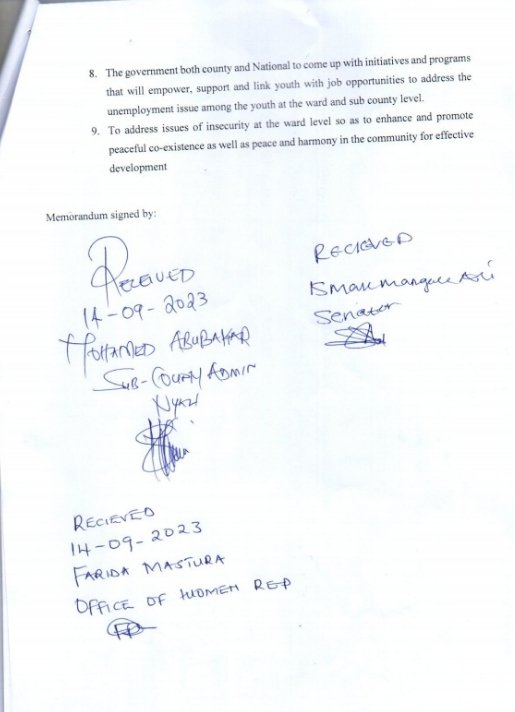 8. The government both county and National to come up with initiatives and programs
that will empower, support and link youth with job opportunities to address the
unemployment issue among the youth at the ward and sub county level.
9. To address issues of insecurity at the ward level so as to enhance and promote
peaceful co-existence as well as peace and harmony in the community for effective
development
Memorandum signed by:
RECEIVED
14-09-2023
MOHAMED ABUBAKAR
SUB-COUNTY ADMIN
RECIEVED
Senator
RECIEVED
14-09-2023
FARIDA MASTURA
OFFICE OF WOMEN REP